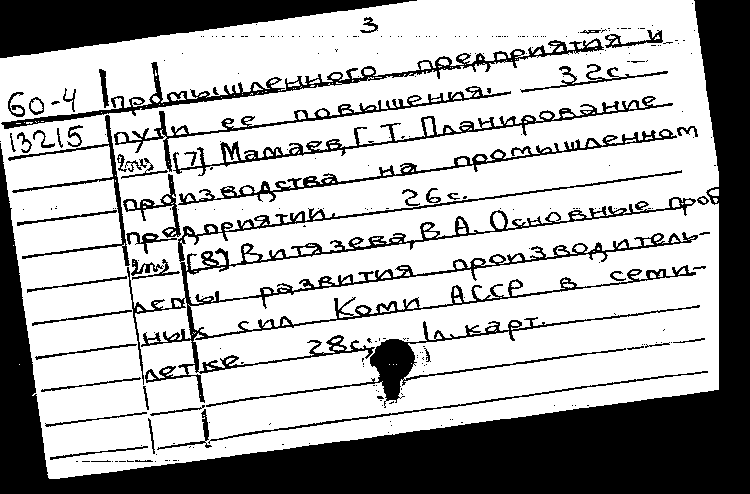 3
60-4 промышленного предприятия и
13215 пути ее повышения. 32с.
2отз [7]. Мамаев, Г. Т. Планирование
производства на промышленном
предприятии. 26с.
2отз [8] Витязева, В. А. Основные проб
лемы развития производитель-
ных сил Коми АССР в семи-
летке. 28с; 1л. карт.